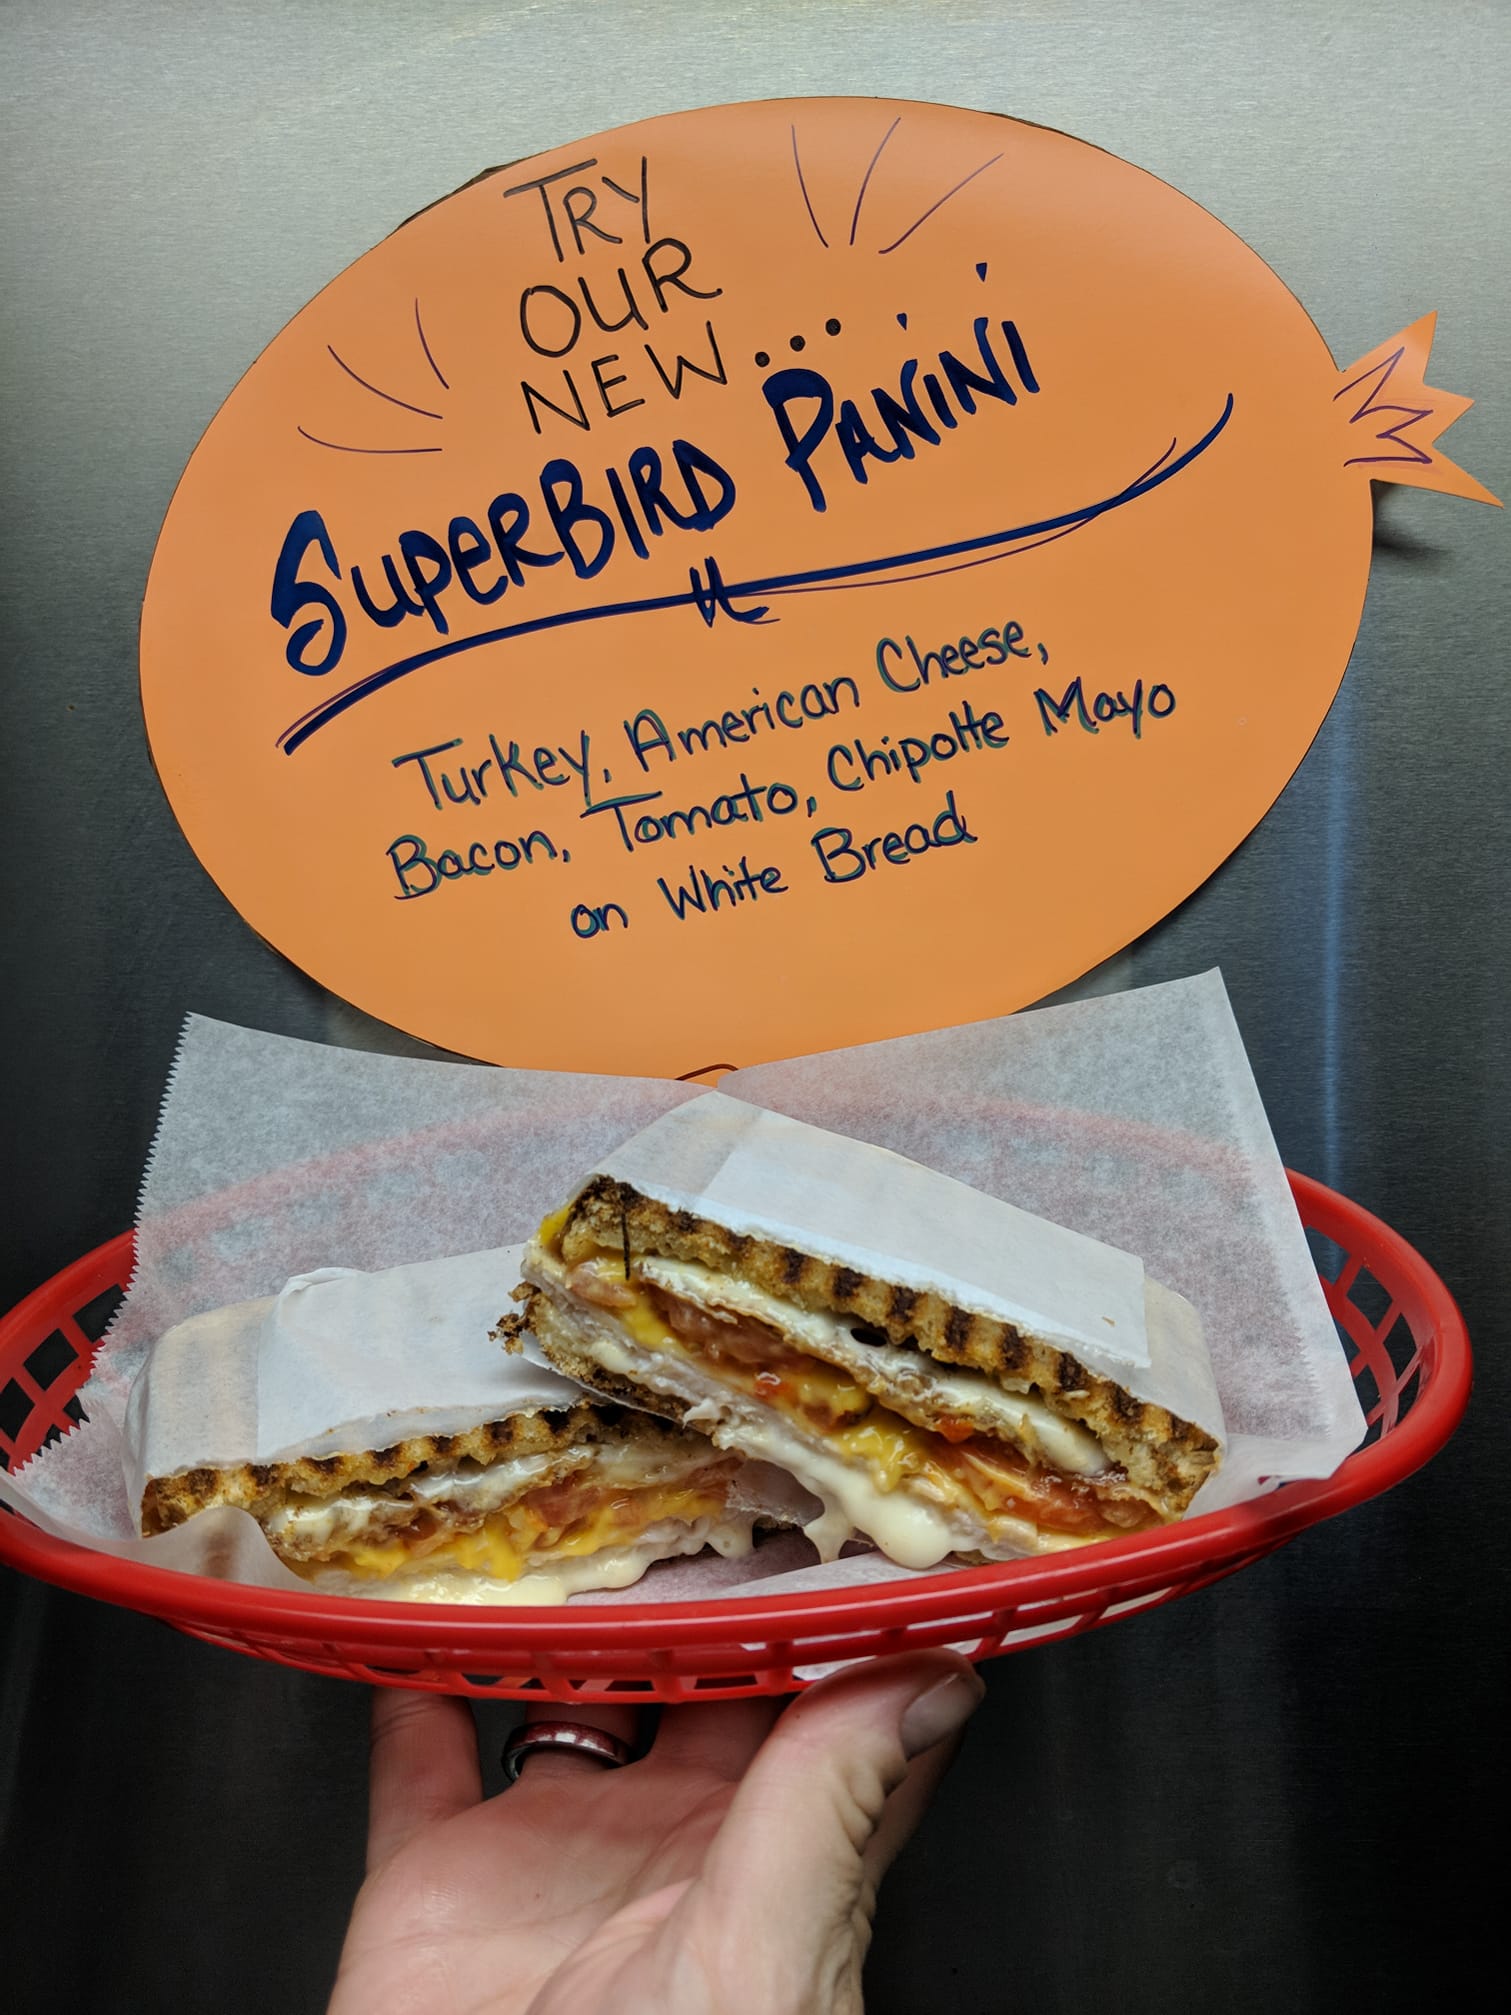 TRY
OUR
NEW...
SUPERBIRD PANINI
Turkey, American Cheese,
Bacon, Tomato, Chipotte Mayo
on White Bread